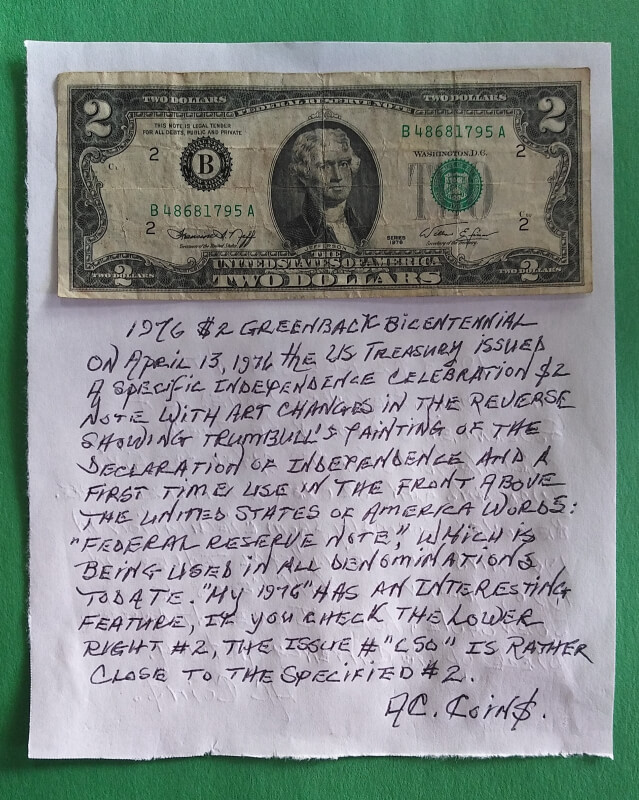 2
TWO DOLLARS
FEDERAL RESERVE NOTE
TWO DOLLARS
2
THIS NOTE IS LEGAL TENDER
FOR ALL DEBTS, PUBLIC AND PRIVATE
B 48681795 A
2
B
WASHINGTON, D.C.
2
TWO
B 48681795 A
2
2
SERIES
1976
JEFFERSON
TWO DOLLARS
2
THE
UNITED STATES OF AMERICA
TWO DOLLARS
2
TWO DOLLARS
1976 $2 GREENBACK BICENTENNIAL
ON APRIL 13, 1976 the US TREASURY ISSUED
A SPECIFIC INDEPENDENCE CELEBRATION $2
NOTE WITH ART CHANGES IN THE REVERSE
SHOWING TRUMBULL'S PAINTING OF THE
DECLARATION OF INDEPENDENCE AND A
FIRST TIME USE IN THE FRONT ABOVE
THE UNITED STATES OF AMERICA WORDS:
"FEDERAL RESERVE NOTE", WHICH IS
BEING USED IN ALL DENOMINATIONS
TO DATE. "MY 1976" HAS AN INTERESTING
FEATURE, IF YOU CHECK THE LOWER
RIGHT #2, THE ISSUE # "C50" IS RATHER
CLOSE TO THE SPECIFIED #2.
AC. COIN$.